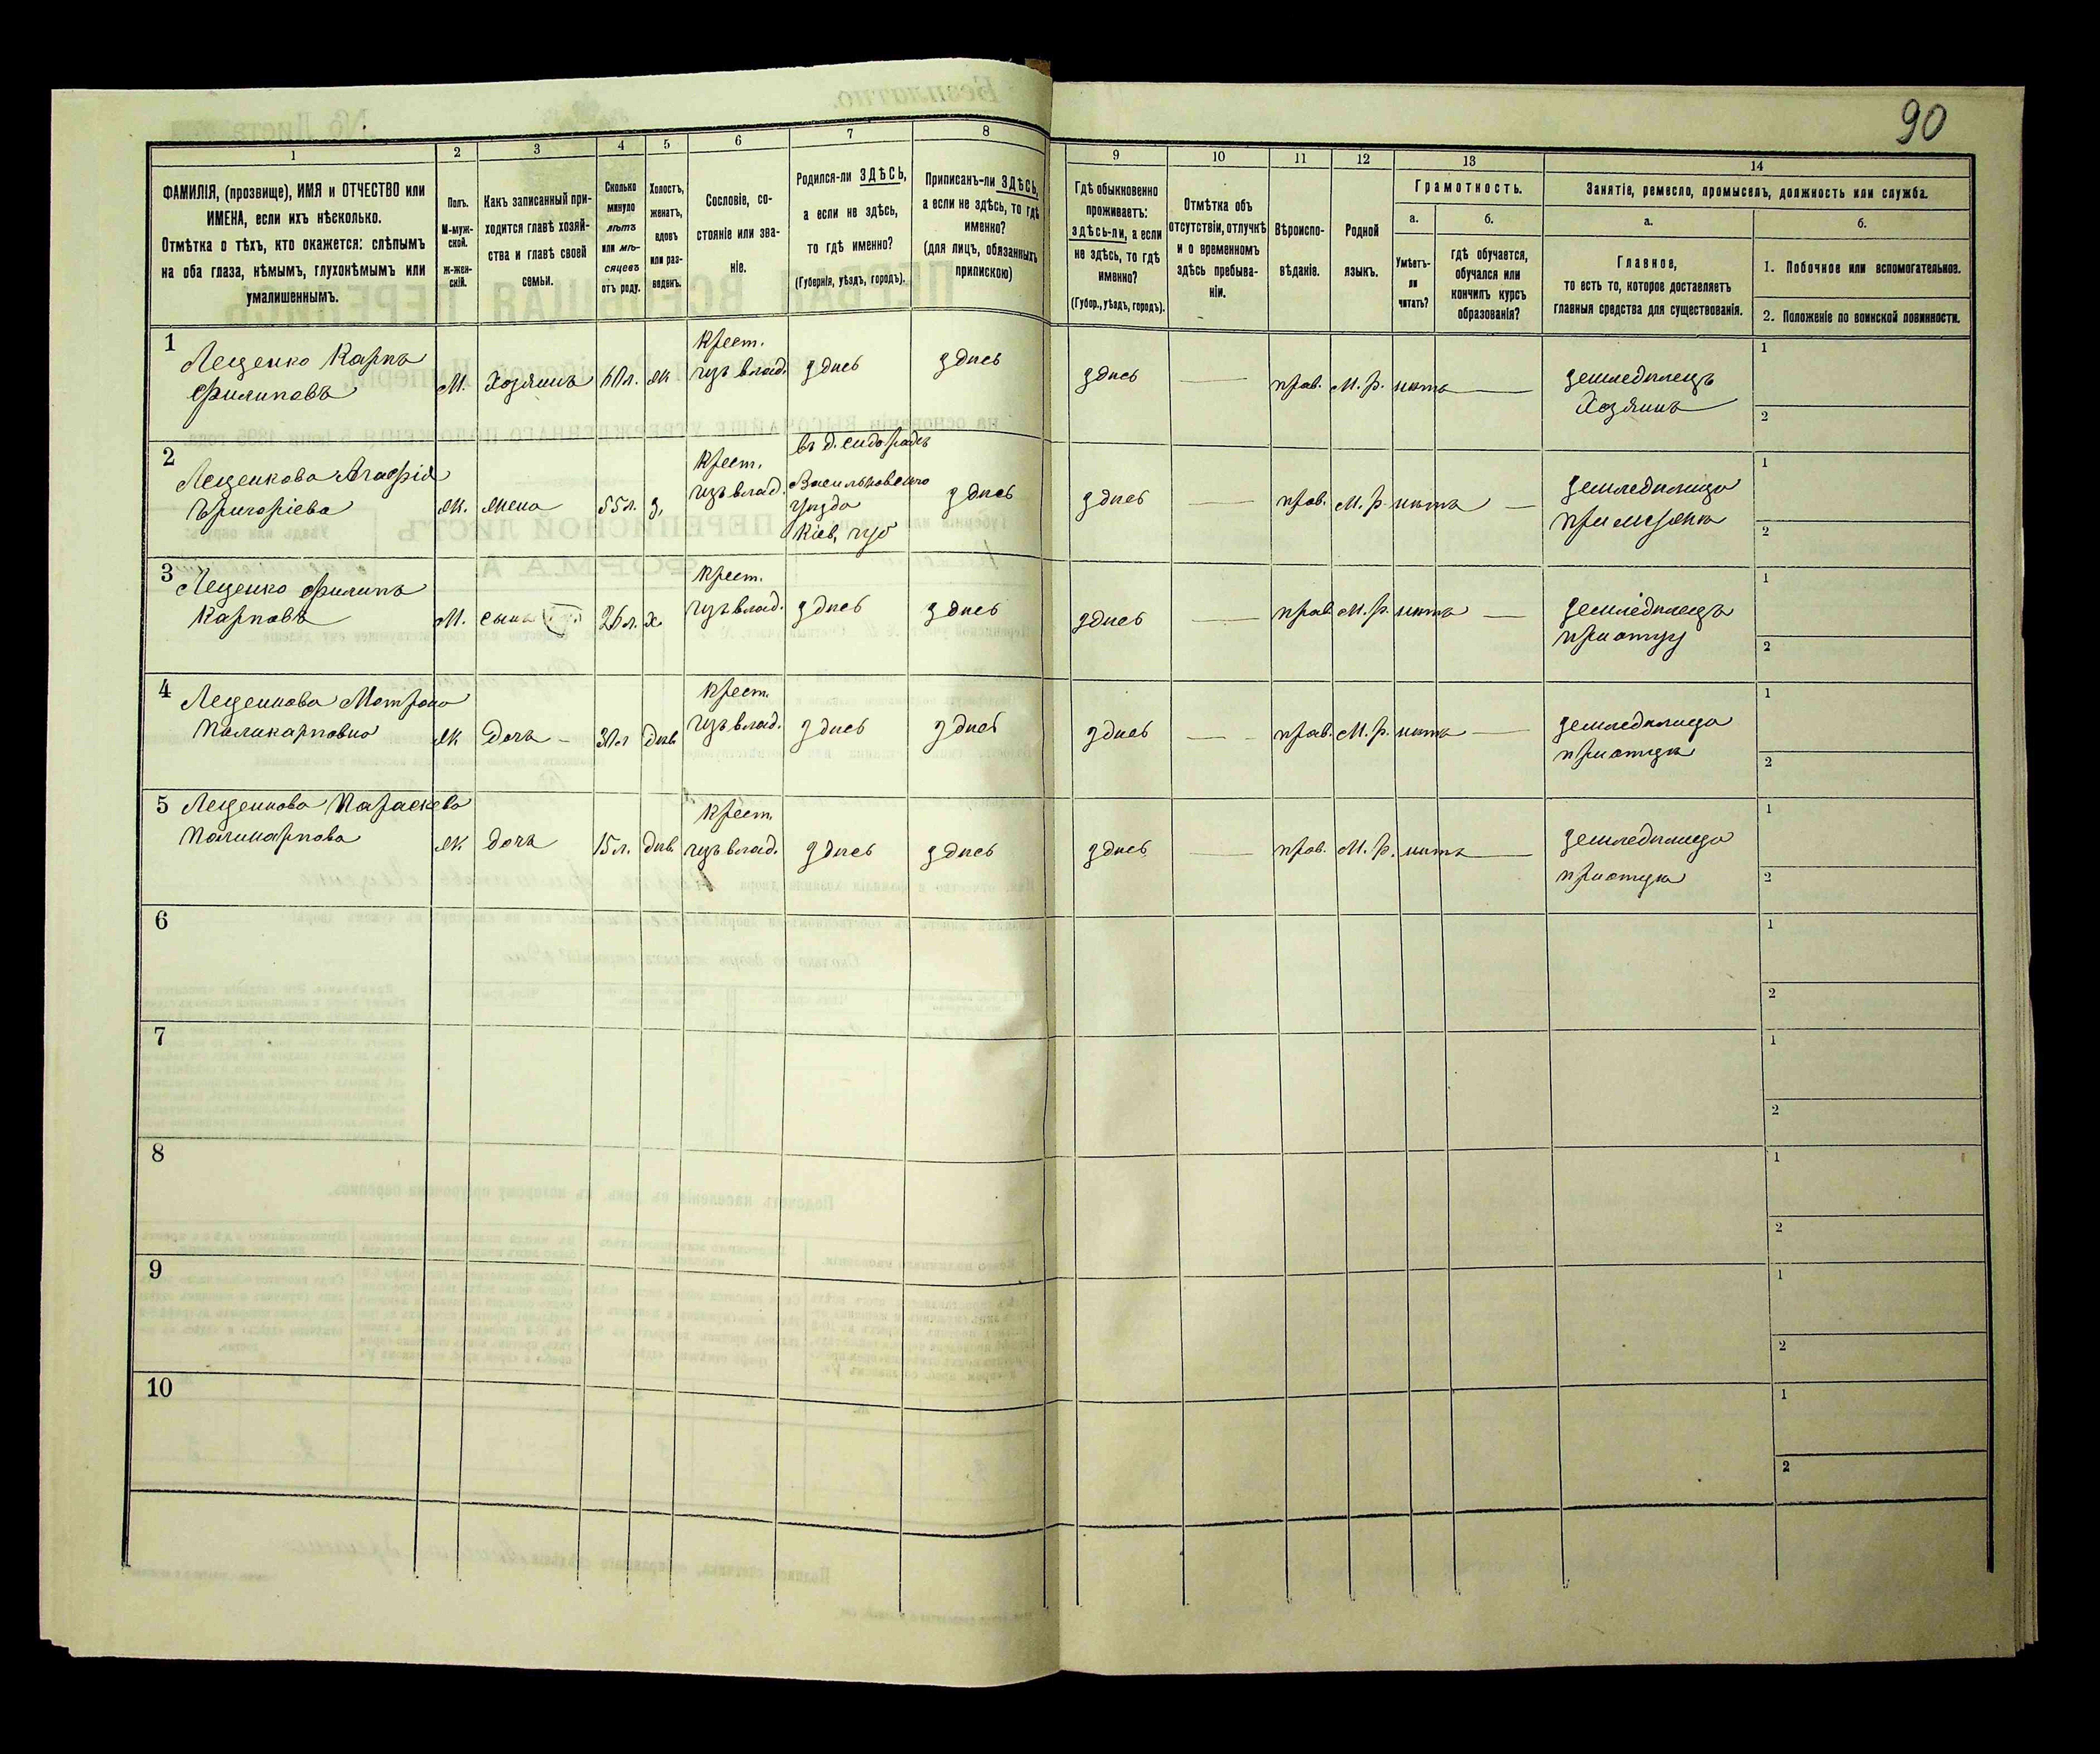 90
1 2 3 4 5 6 7 8 9 10 11 12 13 14
ФАМИЛІЯ, (прозвище), ИМЯ и ОТЧЕСТВО или
ИМЕНА, если ихъ нѣсколько.
Отмѣтка о тѣхъ, кто окажется: слѣпымъ
на оба глаза, нѣмымъ, глухонѣмымъ или
умалишеннымъ.
Полъ.
М-муж-
ской.
Ж-жен-
скій.
Какъ записанный при-
ходится главѣ хозяй-
ства и главѣ своей
семьи.
Сколько
минуло
лѣтъ
или мѣ-
сяцевъ
отъ роду.
Холостъ,
женатъ,
вдовъ
или раз-
веденъ.
Сословіе, со-
стояніе или зва-
ніе.
Родился-ли ЗДѢСЬ,
а если не здѣсь,
то гдѣ именно?
(Губернія, уѣздъ, городъ).
Приписанъ-ли ЗДѢСЬ,
а если не здѣсь, то гдѣ
именно?
(для лицъ, обязанныхъ
припискою)
Гдѣ обыкновенно
проживаетъ:
здѣсь-ли, а если
не здѣсь, то гдѣ
именно?
(Губор., уѣздъ, городъ).
Отмѣтка объ
отсутствіи, отлучкѣ
и о временномъ
здѣсь пребыва-
ніи.
Вѣроиспо-
вѣданіе.
Родной
языкъ.
Грамотность.
а.
Умѣетъ-
ли
читать?
б.
Гдѣ обучается,
обучался или
кончилъ курсъ
образованія?
Занятіе, ремесло, промыселъ, должность или служба.
а.
Главное,
то есть то, которое доставляетъ
главныя средства для существованія.
б.
1. Побочное или вспомогательное.
2. Положеніе по воинской повинности.
1
Лещенко Карпъ
Филиповъ
М.
Хозяинъ
60 л.
ж
Крест.
изъ влад.
здѣсь
здѣсь
здѣсь
прав.
М. р.
нѣтъ
земледѣлецъ
Хозяинъ
1
2
2
Лещенкова Агафія
Григоріева
ж.
жена
55 л.
з.
Крест.
изъ влад.
Въ д.
Васильковскаго
уѣзда
Кіев. губ
здѣсь
здѣсь
прав.
М. р.
нѣтъ
земледѣлица
при мужѣ
1
2
3
Лещенко Филипъ
Карповъ
М.
сынъ
26 л.
х
Крест.
изъ влад.
здѣсь
здѣсь
здѣсь
прав
М. р.
нѣтъ
земледѣлецъ
при отцу
1
2
4
Лещенкова Мотрона
Поликарповна
ж
Дочь
30 л
дѣв.
Крест.
изъ влад.
здѣсь
здѣсь
здѣсь
прав.
М. р.
нѣтъ
земледѣлица
при отцѣ
1
2
5
Лещенкова Параскева
Поликарпова
ж
дочь
15 л.
дѣв.
Крест.
изъ влад.
здѣсь
здѣсь
здѣсь
прав.
М. р.
нѣтъ
земледѣлица
при отцѣ
1
2
6
1
2
7
1
2
8
1
2
9
1
2
10
1
2